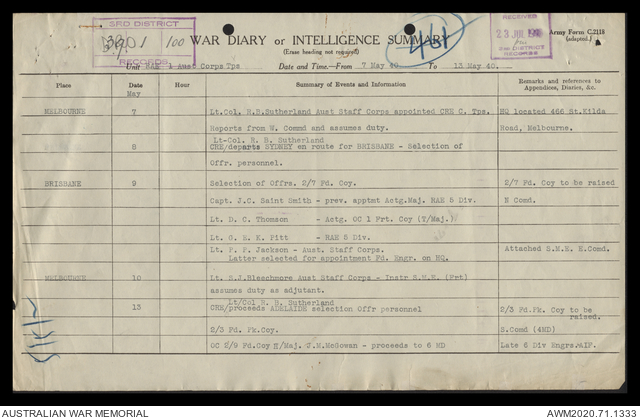 3RD DISTRICT
RECORDS
100
WAR DIARY or INTELLIGENCE SUMMARY
(Erase heading not required)
461
RECEIVED
2ND DISTRICT
RECORDS
Army Form C.2118
(adapted.)
Unit 1 Aust Corps Tps Date and Time.—From 7 May 40. To 13 May 40.
Place Date Hour Summary of Events and Information Remarks and references to Appendices, Diaries, etc.
May
MELBOURNE 7 Lt.Col. R.B.Sutherland Aust Staff Corps appointed CRE C. Tps. HQ located 466 St.Kilda
Reports from W. Commd and assumes duty. Road, Melbourne.
Lt-Col. R. B. Sutherland
8 CRE/departs SYDNEY en route for BRISBANE - Selection of
Offr. personnel.
BRISBANE 9 Selection of Offrs. 2/7 Fd. Coy. 2/7 Fd. Coy to be raised
Capt. J.C. Saint Smith - prev. apptmt Actg.Maj. RAE 5 Div. N Comd.
Lt. D. C. Thomson - Actg. OC 1 Frt. Coy (T/Maj.)
Lt. G. E. K. Pitt - RAE 5 Div.
Lt. P. P. Jackson - Aust. Staff Corps. Attached S.M.E. E.Comd.
Latter selected for appointment Fd. Engr. on HQ.
MELBOURNE 10 Lt. S.J.Bleechmore Aust Staff Corps - Instr S.M.E. (Frt)
assumes duty as adjutant.
Lt/Col R. B. Sutherland
13 CRE/proceeds ADELAIDE selection Offr personnel 2/3 Fd.Pk. Coy to be
raised.
2/3 Fd. Pk.Coy. S.Comd (4MD)
OC 2/9 Fd.Coy Maj. J.M.McGowan - proceeds to 6 MD Late 6 Div Engrs.AIF.
AUSTRALIAN WAR MEMORIAL AWM2020.71.1333